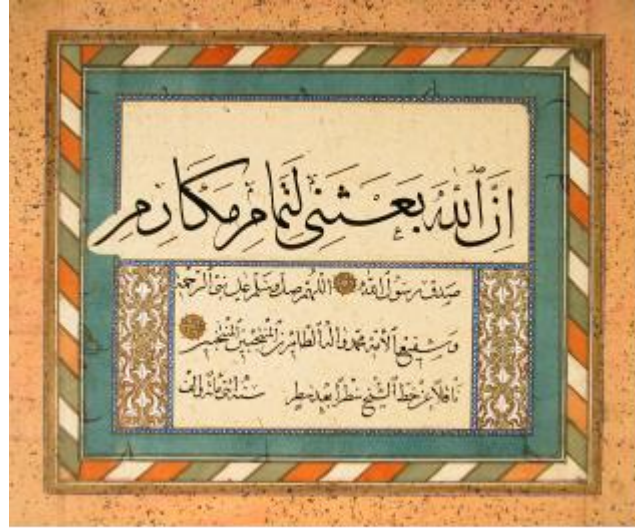 اِنَّ اللّٰهَ بَعَثَنِى لِتَمامِ مَكَارِمِ
صدق رسول الله اللهم صل وسلم على نبى الرحمة
وشفيع الأمة محمد وآله الطاهرين المنتجبين
ناقلا عن خط الشيخ سطرا بعد سطر سنة